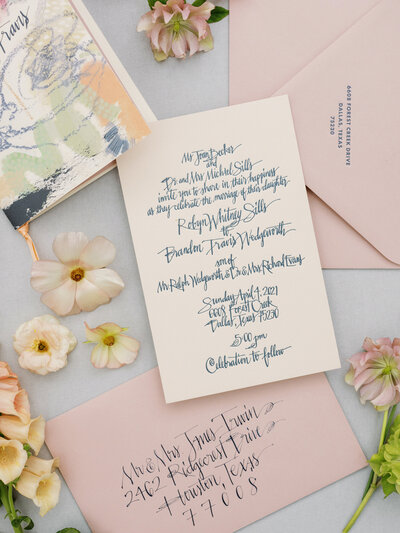 Travis
6608 FOREST CREEK DRIVE
DALLAS, TEXAS
75230
Ms Joan Becker
and
Dr. and Mrs Michael Sills
invite you to share in their happiness
as they celebrate the marriage of their daughter
Robyn Whitney Sills
to
Brandon Travis Wedgeworth
son of
Mr. Ralph Wedgeworth & Dr & Mrs. Richard
Sunday April 4, 2021
6608 Forest Creek
Dallas, Texas 75230
5:00 pm
Celebration to follow
Mr & Mrs James Irwin
2462 Ridgecrest Drive
Houston, Texas
77008